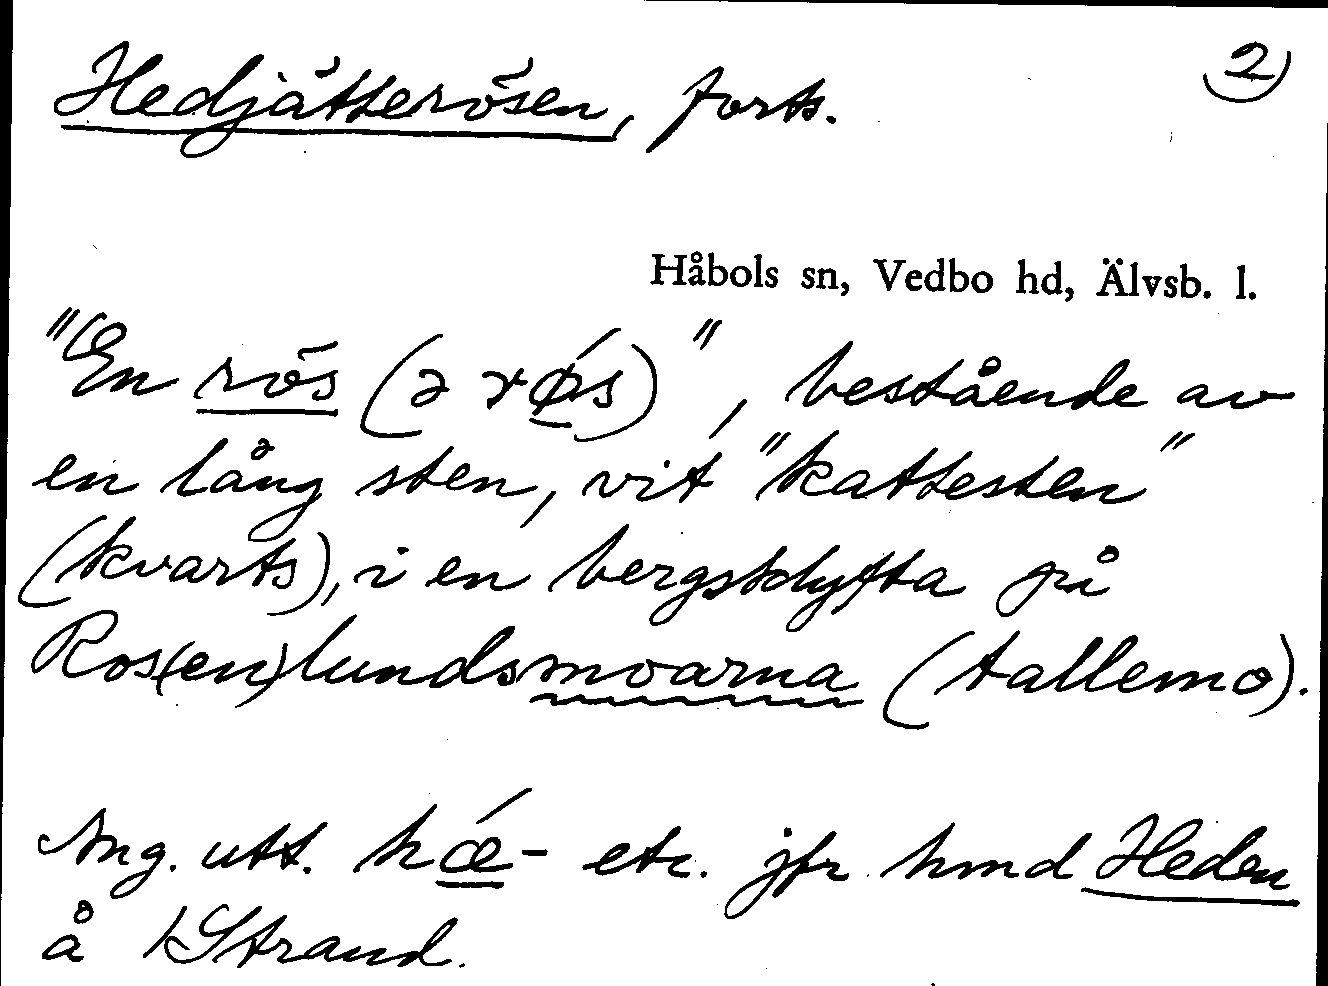 Hedjätterösen, forts.
2
Håbols sn, Vedbo hd, Älvsb. l.
"En rös (ə rǿs)", bestående av
en lång sten, vit "kattesten"
(kvarts), i en bergsklyfta på
Ros(en)lundsmoarna (tallemo).
Ang. utt. hǽ- etc. jfr hmd Heden
å 1Strand.